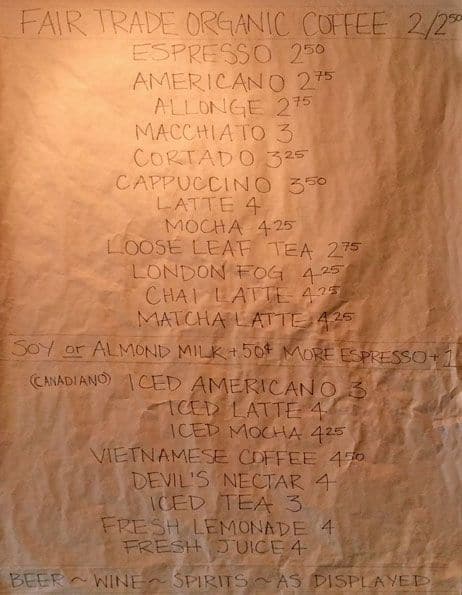 FAIR TRADE ORGANIC COFFEE 2/2⁵⁰
ESPRESSO 2⁵⁰
AMERICANO 2⁷⁵
ALLONGE 2⁷⁵
MACCHIATO 3
CORTADO 3²⁵
CAPPUCCINO 3⁵⁰
LATTE 4
MOCHA 4²⁵
LOOSE LEAF TEA 2⁷⁵
LONDON FOG 4²⁵
CHAI LATTE 4²⁵
MATCHA LATTE 4²⁵
SOY or ALMOND MILK +50¢ MORE ESPRESSO +1
(CANADIANO) ICED AMERICANO 3
ICED LATTE 4
ICED MOCHA 4²⁵
VIETNAMESE COFFEE 4⁵⁰
DEVIL'S NECTAR 4
ICED TEA 3
FRESH LEMONADE 4
FRESH JUICE 4
BEER ~ WINE ~ SPIRITS ~ AS DISPLAYED